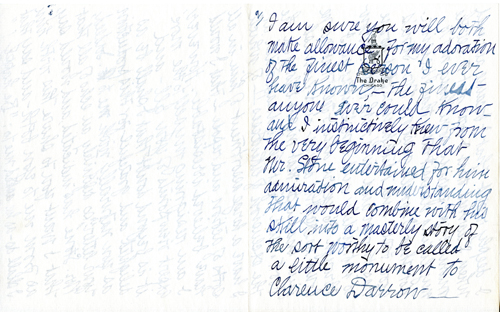 I am sure you will both
make allowance for my adoration
of the finest person I ever
have known, — the finest
anyone ever could know —
and I instinctively knew from
the very beginning that
Mr. Stone entertained for him
admiration and understanding
that would combine with his
skill into a masterly story of
the sort worthy to be called
a little monument to
Clarence Darrow —
The Drake